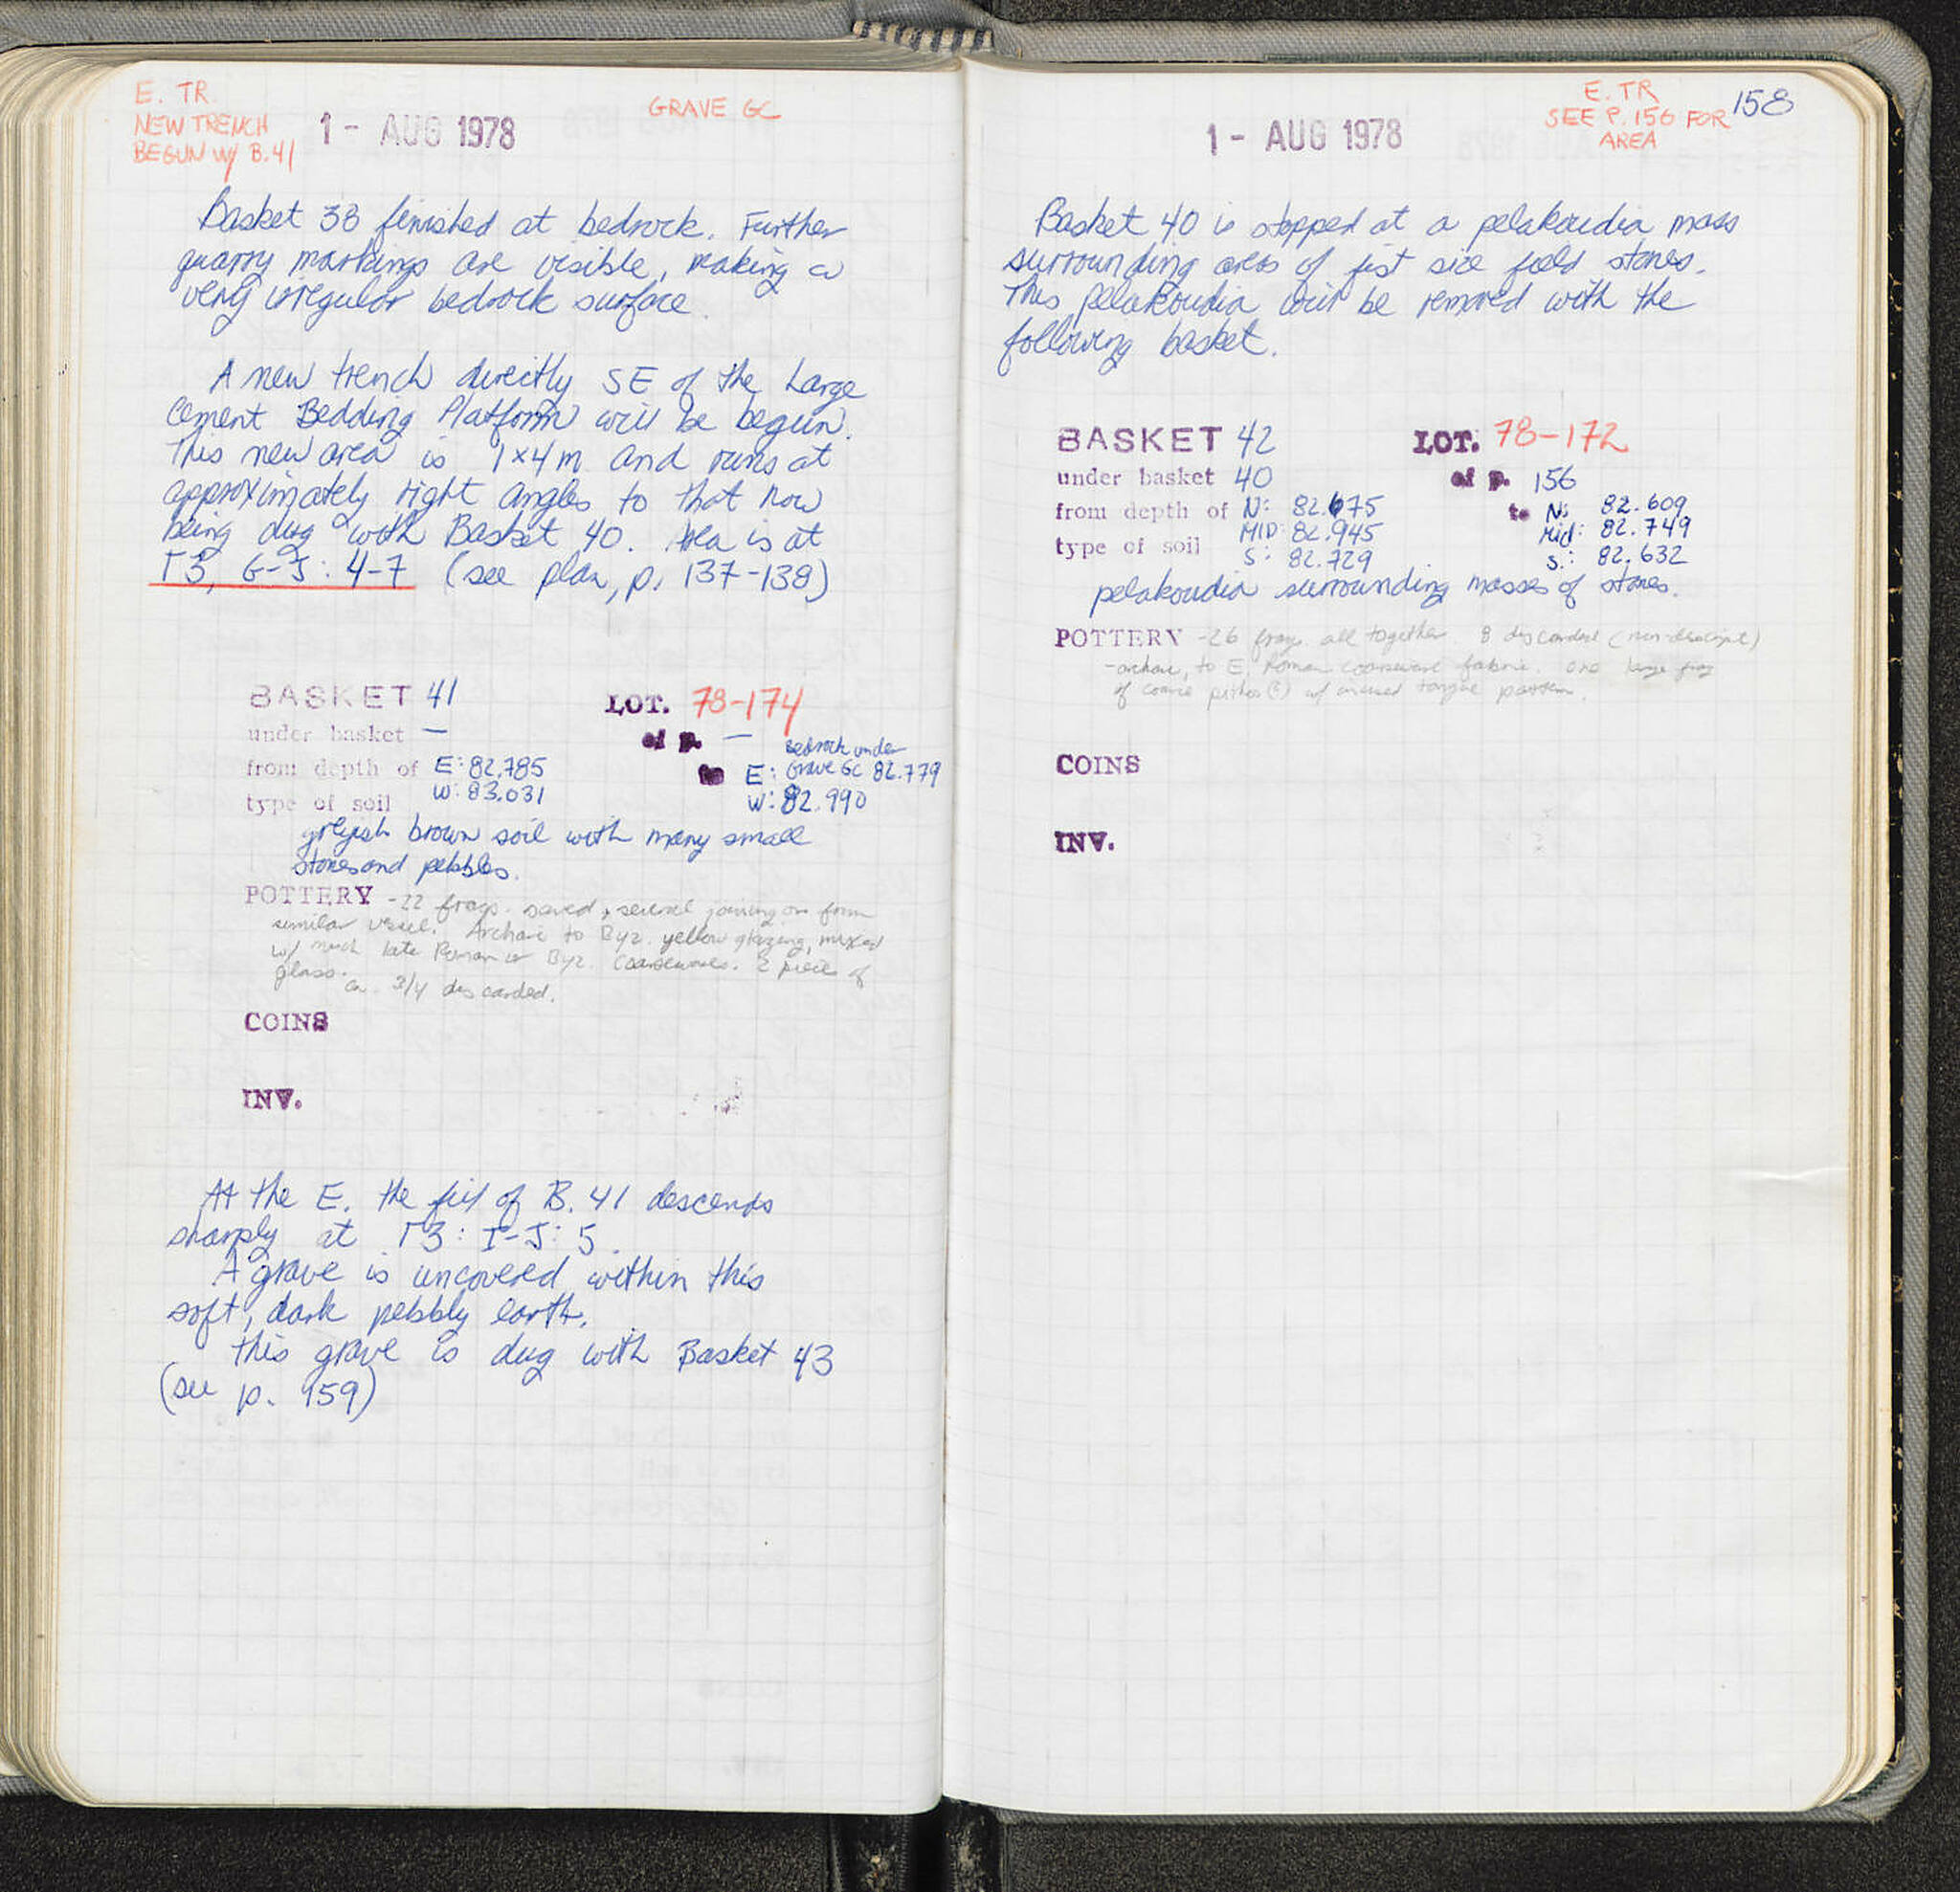 E. TR.
NEW TRENCH
BEGUN W/ B.41
1 - AUG 1978
GRAVE GC
Basket 38 finished at bedrock. Further
quarry markings are visible, making a
very irregular bedrock surface.
A new trench directly SE of the Large
Cement Bedding Platform will be begun.
This new area is 1x4m and runs at
approximately right angles to that now
being dug with Basket 40. Area is at
Γ3, G-J: 4-7 (see plan, p. 137-138)
BASKET 41 LOT. 78-174
under basket — of p. —
from depth of E: 82.785 to E: Bedrock under Grave GC 82.779
W: 83.031 W: 82.990
type of soil
greyish brown soil with many small
stones and pebbles.
POTTERY -22 frags. saved, several joining or from
similar vessel. Archaic to Byz. yellow glazing, mixed
w/ much late Roman or Byz. coarsewares. 2 pieces of
glass. ca. 3/4 discarded.
COINS
INV.
At the E. the fill of B. 41 descends
sharply at Γ3: I-J: 5.
A grave is uncovered within this
soft, dark pebbly earth.
This grave is dug with Basket 43
(see p. 159)
E. TR
SEE P. 156 FOR
AREA
158
1 - AUG 1978
Basket 40 is stopped at a pelakoudia mass
surrounding areas of fist size field stones.
This pelakoudia will be removed with the
following basket.
BASKET 42 LOT. 78-172
under basket 40 of p. 156
from depth of N: 82.675 to N: 82.609
MID: 82.945 Mid: 82.749
type of soil S: 82.729 S.: 82.632
pelakoudia surrounding masses of stones.
POTTERY -26 frags. all together. 8 discarded (non-descript)
-archaic, to E. Roman coarseware fabric. one large frag
of coarse pithos (?) w/ incised tongue pattern.
COINS
INV.